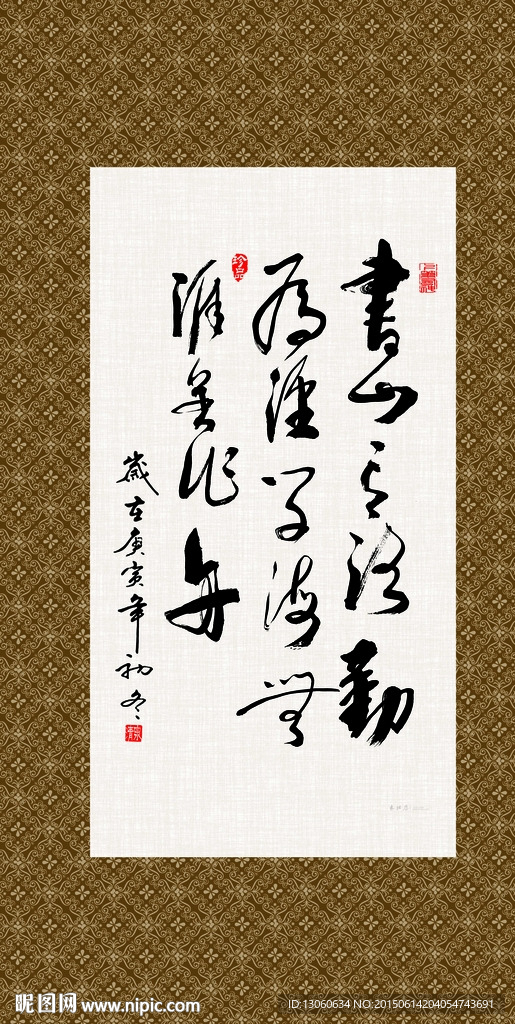 書山有路勤
為徑學海無
涯是作舟
歲在庚寅年初冬
珍品
昵图网 www.nipic.com
ID:13060634 NO:20150614204054743691